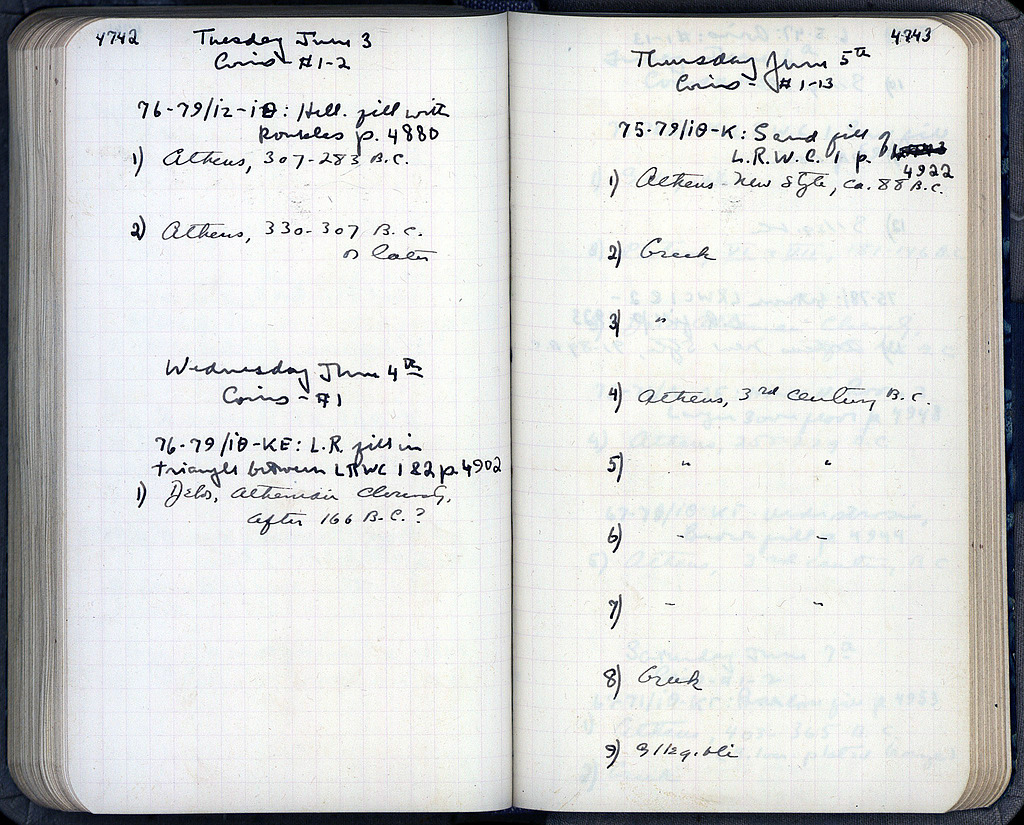 4742
Tuesday June 3
Coins - #1-2
76-79/ΙΖ-ΙΘ: Hell. fill with
p. 4880
1) Athens, 307-283 B.C.
2) Athens, 330-307 B.C.
or later
Wednesday June 4th
Coins - #1
76-79/ΙΘ-ΚΕ: L.R. fill in
triangle between LRWC 1 & 2 p. 4902
1) Delos, Athenian Cleruchy,
after 166 B.C.?
4743
Thursday June 5th
Coins - #1-13
75-79/ΙΘ-Κ: Sand fill of
L.R.W.C. 1 p.
4922
1) Athens New Style, ca. 88 B.C.
2) Greek
3) "
4) Athens, 3rd century B.C.
5) " "
6) " "
7) " "
8) Greek
9) Illegible